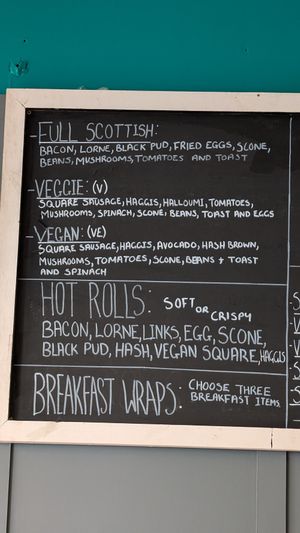 -FULL SCOTTISH:
BACON, LORNE, BLACK PUD, FRIED EGGS, SCONE,
BEANS, MUSHROOMS, TOMATOES AND TOAST
-VEGGIE: (V)
SQUARE SAUSAGE, HAGGIS, HALLOUMI, TOMATOES,
MUSHROOMS, SPINACH, SCONE, BEANS, TOAST AND EGGS
-VEGAN: (VE)
SQUARE SAUSAGE, HAGGIS, AVOCADO, HASH BROWN,
MUSHROOMS, TOMATOES, SCONE, BEANS + TOAST
AND SPINACH
HOT ROLLS: SOFT OR CRISPY
BACON, LORNE, LINKS, EGG, SCONE,
BLACK PUD, HASH, VEGAN SQUARE, HAGGIS
BREAKFAST WRAPS: CHOOSE THREE
BREAKFAST ITEMS.